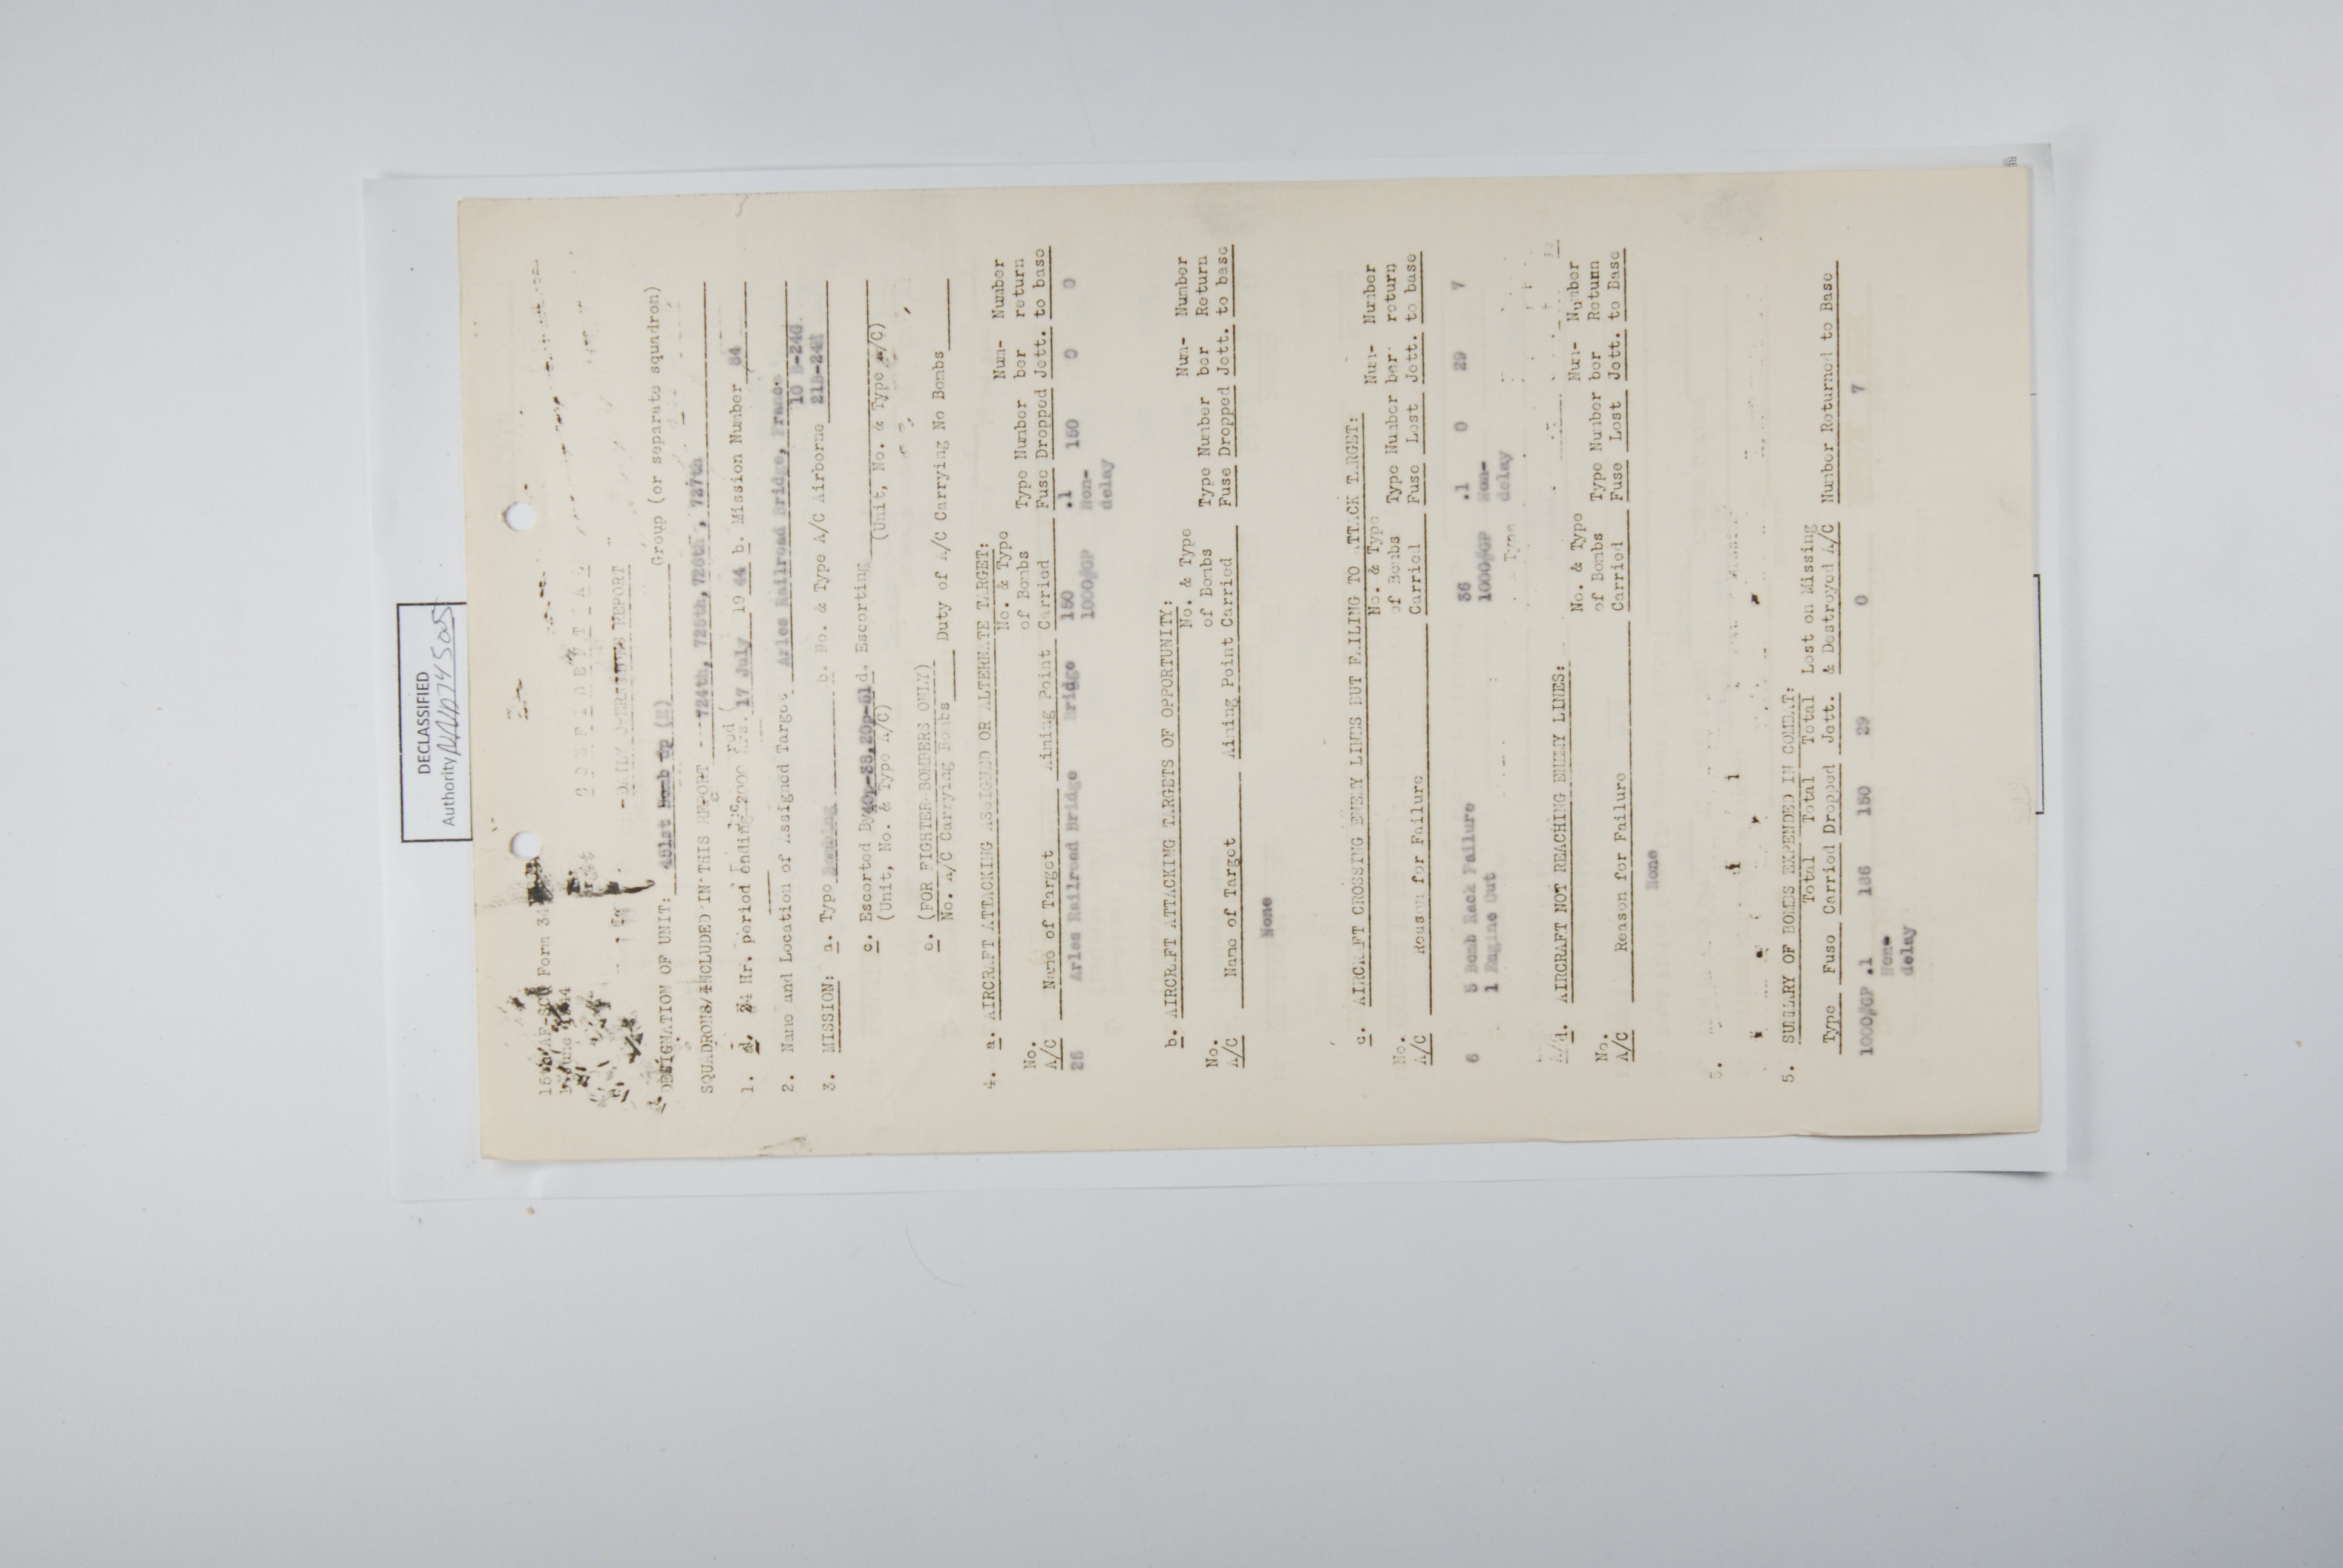 DECLASSIFIED
Authority NND745005
15th AF-SCU Form 34
CONFIDENTIAL
DAILY OPERATIONS REPORT
A. DESIGNATION OF UNIT: 451st Bomb Gp (H) Group (or separate squadron)
SQUADRONS INCLUDED IN THIS REPORT 724th, 725th, 726th, 727th
1. a. 24 Hr. period ending 2000 Hrs. 17 July 19 44 b. Mission Number 84
2. Name and Location of Assigned Target Arles Railroad Bridge, France
10 B-24G
3. MISSION: a. Type Bombing b. No. & Type A/C Airborne 21B-24H
c. Escorted By 40p-38,20p-51 d. Escorting
(Unit, No. & Type A/C) (Unit, No. & Type A/C)
e. (FOR FIGHTER-BOMBERS ONLY)
No. A/C Carrying Bombs Duty of A/C Carrying No Bombs
4. a. AIRCRAFT ATTACKING ASSIGNED OR ALTERNATE TARGET:
No. & Type Num- Number
No. of Bombs Type Number ber return
A/C Name of Target Aiming Point Carried Fuse Dropped Jett. to base
25 Arles Railroad Bridge Bridge 150 .1 150 0 0
1000#GP Non-
delay
b. AIRCRAFT ATTACKING TARGETS OF OPPORTUNITY:
No. & Type Num- Number
No. of Bombs Type Number ber Return
A/C Name of Target Aiming Point Carried Fuse Dropped Jett. to base
None
c. AIRCRAFT CROSSING ENEMY LINES BUT FAILING TO ATTACK TARGET:
No. & Type Num- Number
No. of Bombs Type Number ber return
A/C Reason for Failure Carried Fuse Lost Jett. to base
6 5 Bomb Rack Failure 36 .1 0 29 7
1 Engine Out 1000#GP Non-
delay
Type
d. AIRCRAFT NOT REACHING ENEMY LINES:
No. & Type Num- Number
No. of Bombs Type Number ber Return
A/C Reason for Failure Carried Fuse Lost Jett. to Base
None
5. SUMMARY OF BOMBS EXPENDED IN COMBAT:
Total Total Total Lost on Missing
Type Fuse Carried Dropped Jett. & Destroyed A/C Number Returned to Base
1000#GP .1 186 150 29 0 7
Non-
delay